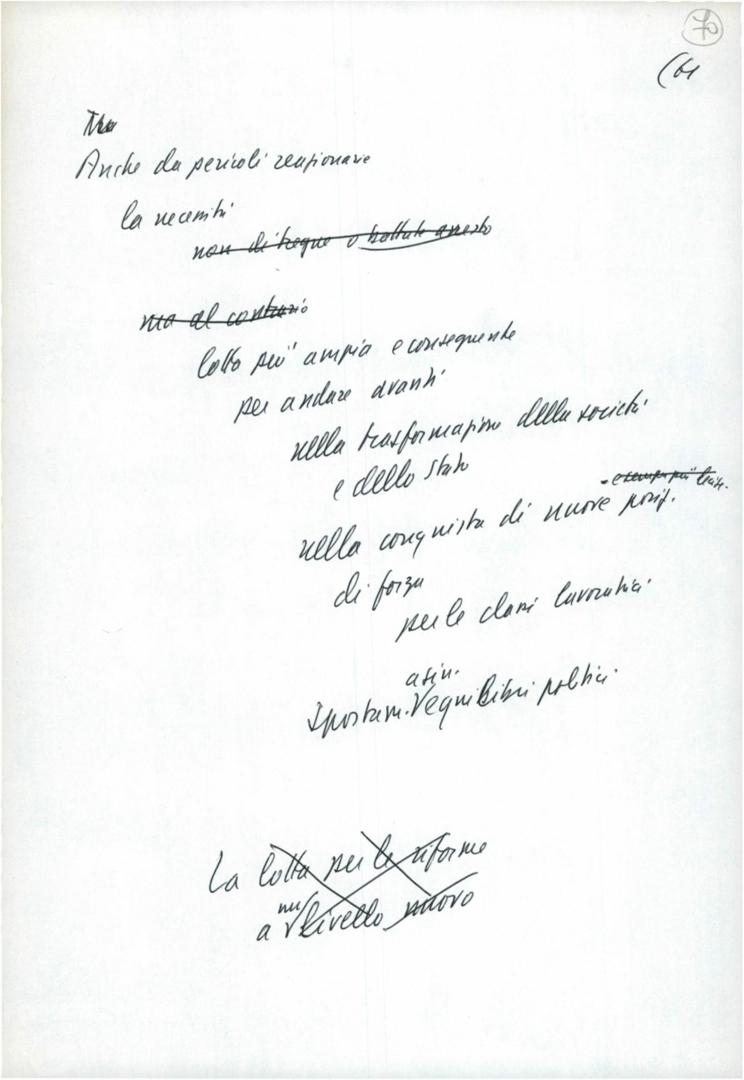 70
(61
Anche da pericoli reazionari
la necessità
non di tregue o battute arresto
ma al contrario
lotta più ampia e conseguente
per andare avanti
nella trasformazione della società
e dello Stato
nella conquista di nuove posiz.
di forza
per le classi lavoratrici
a sin.
Spostam. equilibri politici
La lotta per le riforme
a livello nuovo